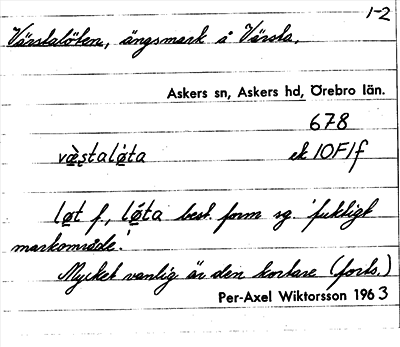 1-2
Värstalöten, ängsmark å Värsta.
Askers sn, Askers hd, Örebro län.
678
væ̀ʂtalø̀ta ek 10F1f
løt f., løta best. form sg. 'fuktigt
markområde'.
Mycket vanlig är den kortare (forts.)
Per-Axel Wiktorsson 1963